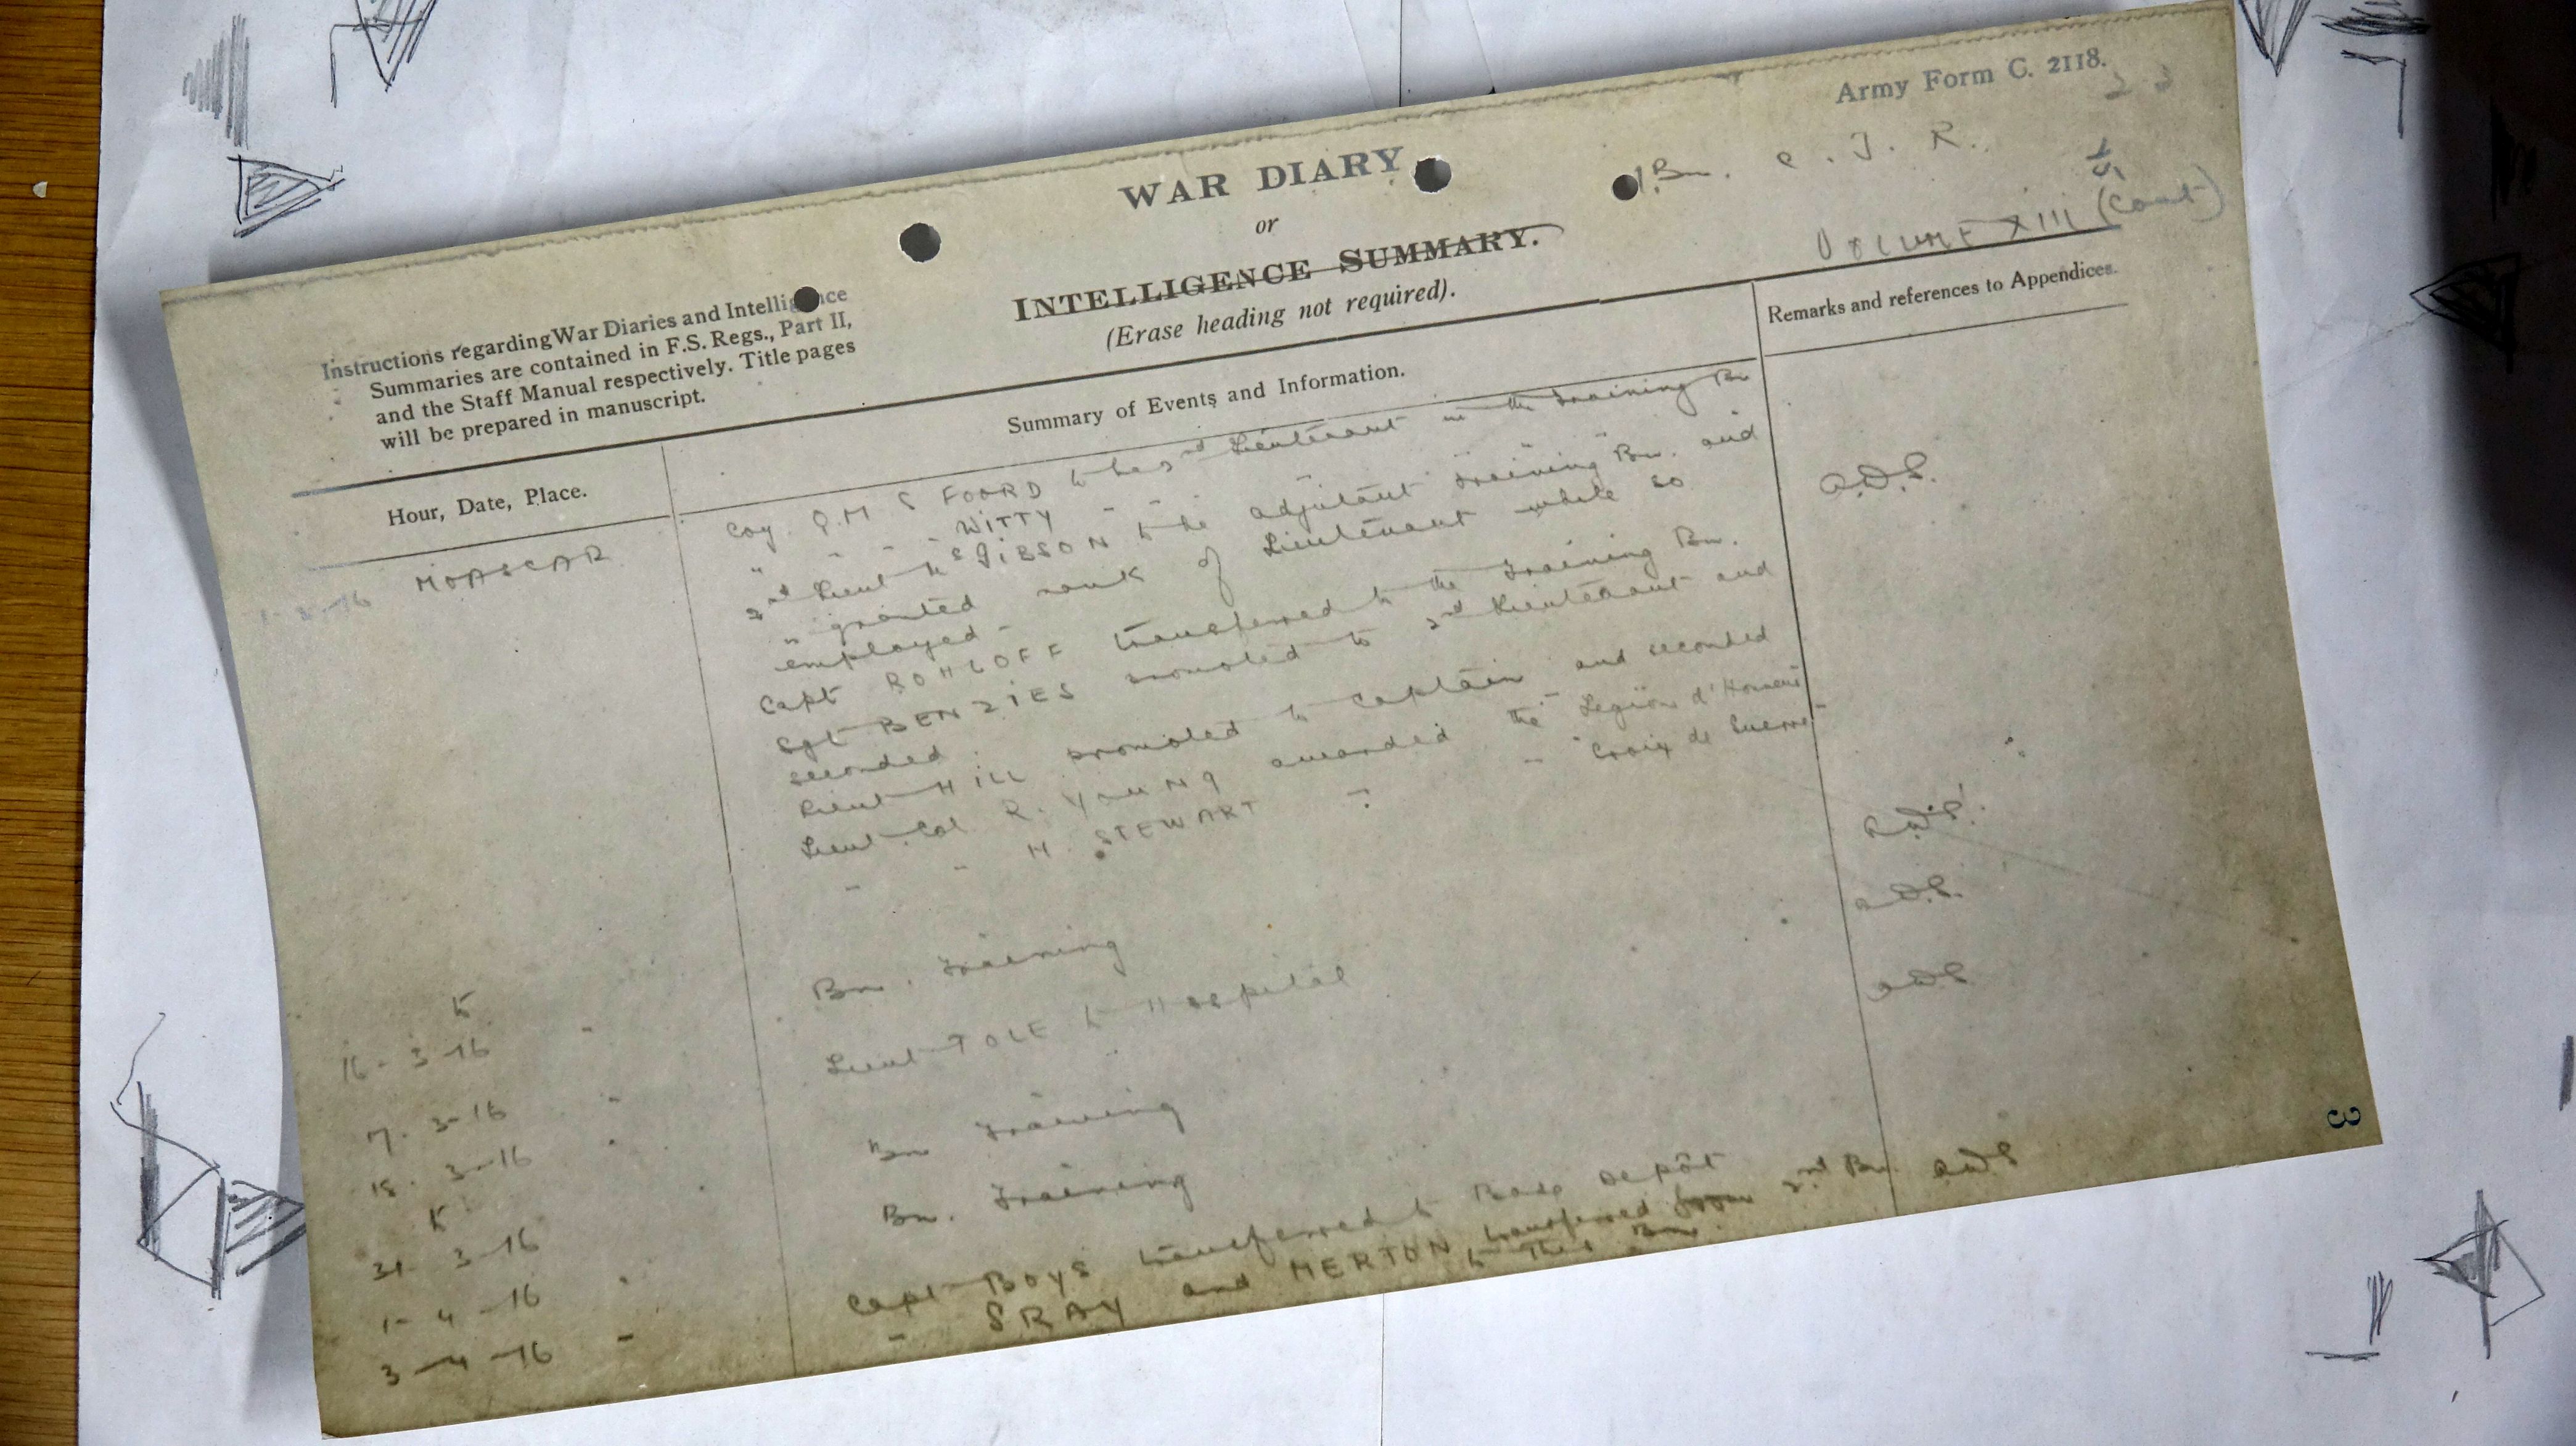 Army Form C. 2118.
WAR DIARY
or
INTELLIGENCE SUMMARY.
(Erase heading not required).
1. Bn. C. I. R.
VOLUME XIII (Cont)
Instructions regarding War Diaries and Intelligence
Summaries are contained in F.S. Regs., Part II,
and the Staff Manual respectively. Title pages
will be prepared in manuscript.
Hour, Date, Place.
Summary of Events and Information.
Remarks and references to Appendices.
MOASCAR
Coy. Q.M S FOORD to be 2nd Lieutenant in the Training Bn
" - - - WITTY - " " "
2nd Lieut GIBSON to be adjutant Training Bn. and
" granted rank of Lieutenant while so
employed -
Capt ROHLOFF transferred to the Training Bn.
Sgt BENZIES promoted to 2nd Lieutenant and
seconded
Lieut HILL promoted to Captain and seconded
Lieut Col R. YOUNG awarded the Legion d'Honneur
" - H. STEWART " - Croix de Guerre
to
16-3-16 " Bn. Training
17-3-16 " Lieut TOLE to Hospital
18-3-16 " Bn Training
to
31-3-16
1-4-16 " Bn. Training
3-4-16 " Capt BOYS transferred to Base Depôt
" GRAY and MERTON transferred from 2nd Bn.
to This Bn.
3